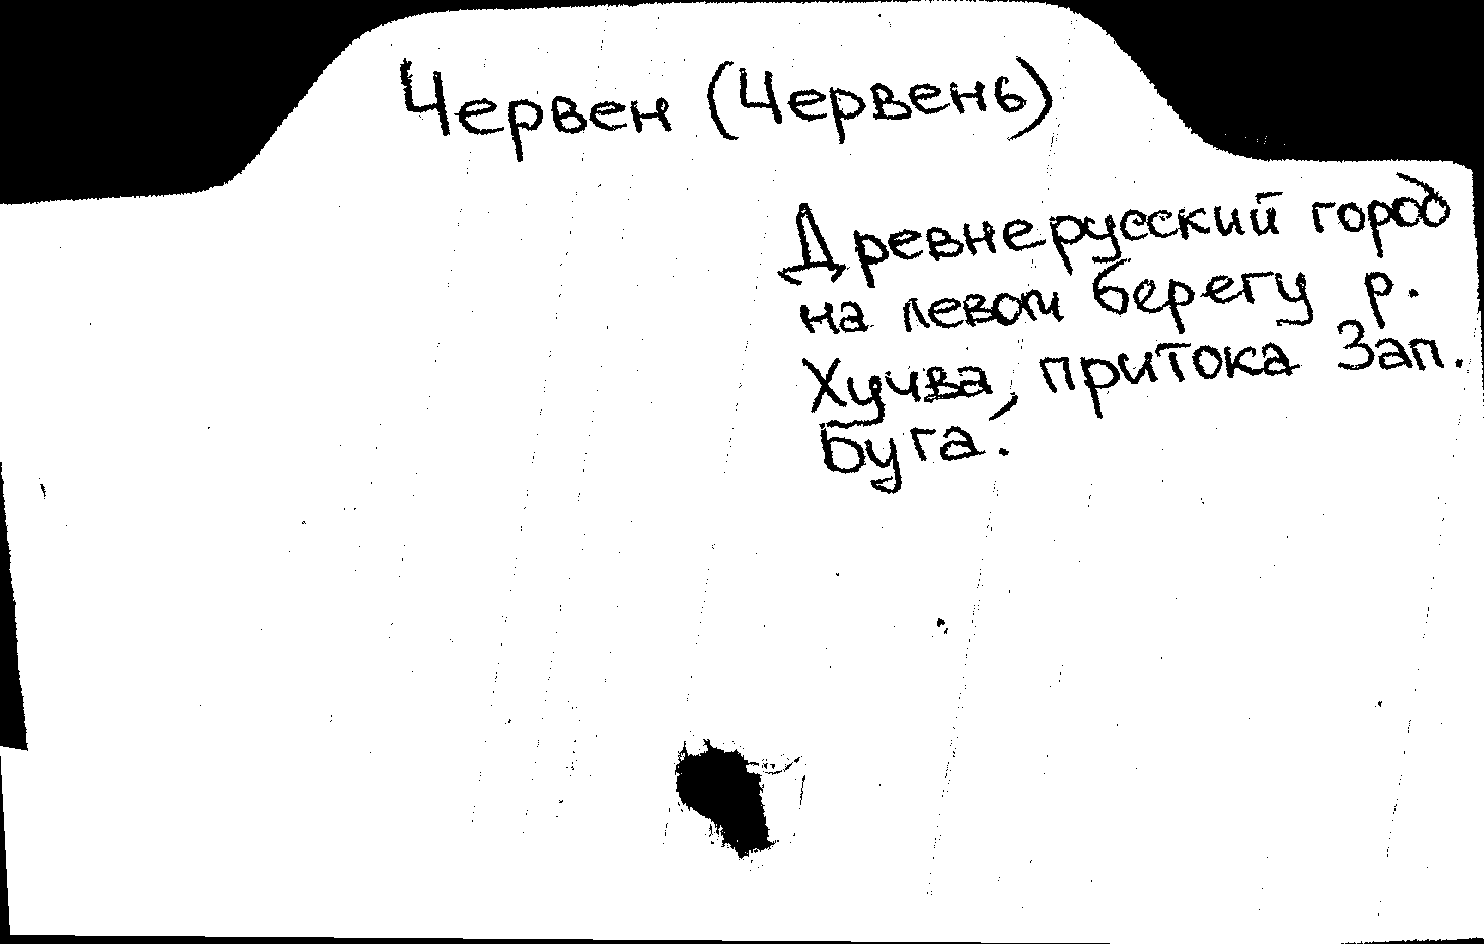 Червен (Червень)
Древнерусский город
на левом берегу р.
Хучва, притока Зап.
Буга.